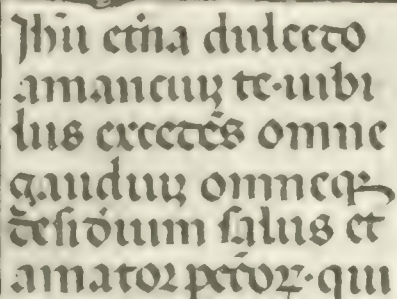 Jhū et̄na dulcedo
amanciuꝫ te·iubi
lus excedēs omne
gaudiuꝫ omneqꝫ
desideriuum salus et
amator pctōꝝ·qui